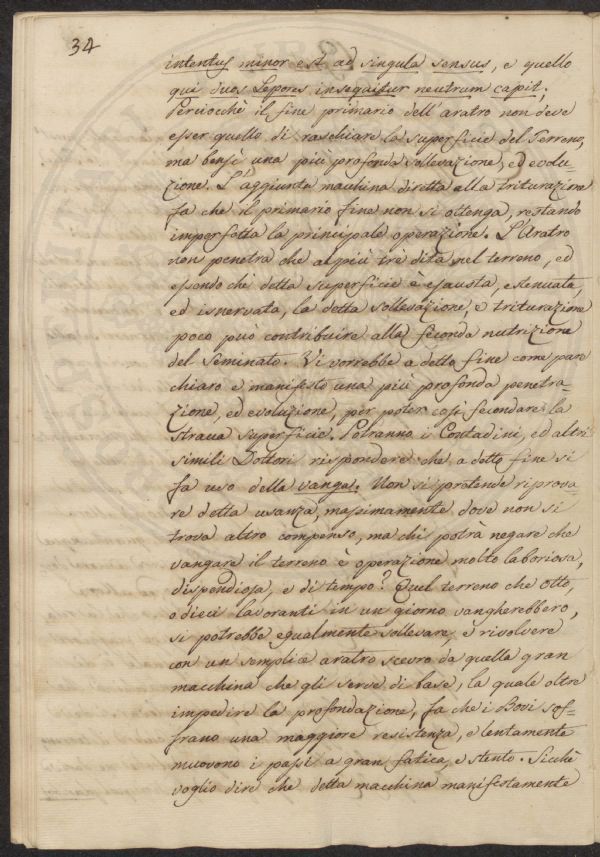 34
intentus minor est ad singula sensus, e quello
qui duos Lepores insequitur neutrum capit.
Perciocchè il fine primario dell'aratro non deve
esser quello di raschiare la superficie del Terreno,
ma bensì una più profonda sollevazione, ed evolu-
zione. L'aggiunta macchina diretta alla triturazione
fa che il primario fine non si ottenga, restando
imperfetta la principale operazione. L'Aratro
non penetra che al più tre dita nel terreno, ed
essendo che detta superficie è esausta, estenuata,
ed isnervata, la detta sollevazione, e triturazione
poco può contribuire alla feconda nutrizione
del Seminato. Vi vorrebbe a detto fine come pare
chiaro e manifesto una più profonda penetra-
zione, ed evoluzione, per poter così fecondare la
stracca superficie. Potranno i Contadini, ed altri
simili Dottori rispondere che a detto fine si
fa uso della vanga. Non si pretende riprova-
re detta usanza, massimamente dove non si
trova altro compenso, ma chi potrà negare che
vangare il terreno è operazione molto laboriosa,
dispendiosa, e di tempo? Quel terreno che otto,
o dieci lavoranti in un giorno vangherebbero,
si potrebbe egualmente sollevare, e risolvere
con un semplice aratro scevro da quella gran
macchina che gli serve di base, la quale oltre
impedire la profondazione, fa che i Bovi sof-
frano una maggiore resistenza, e lentamente
muovono i passi a gran fatica, e stento. Sicchè
voglio dire che detta macchina manifestamente